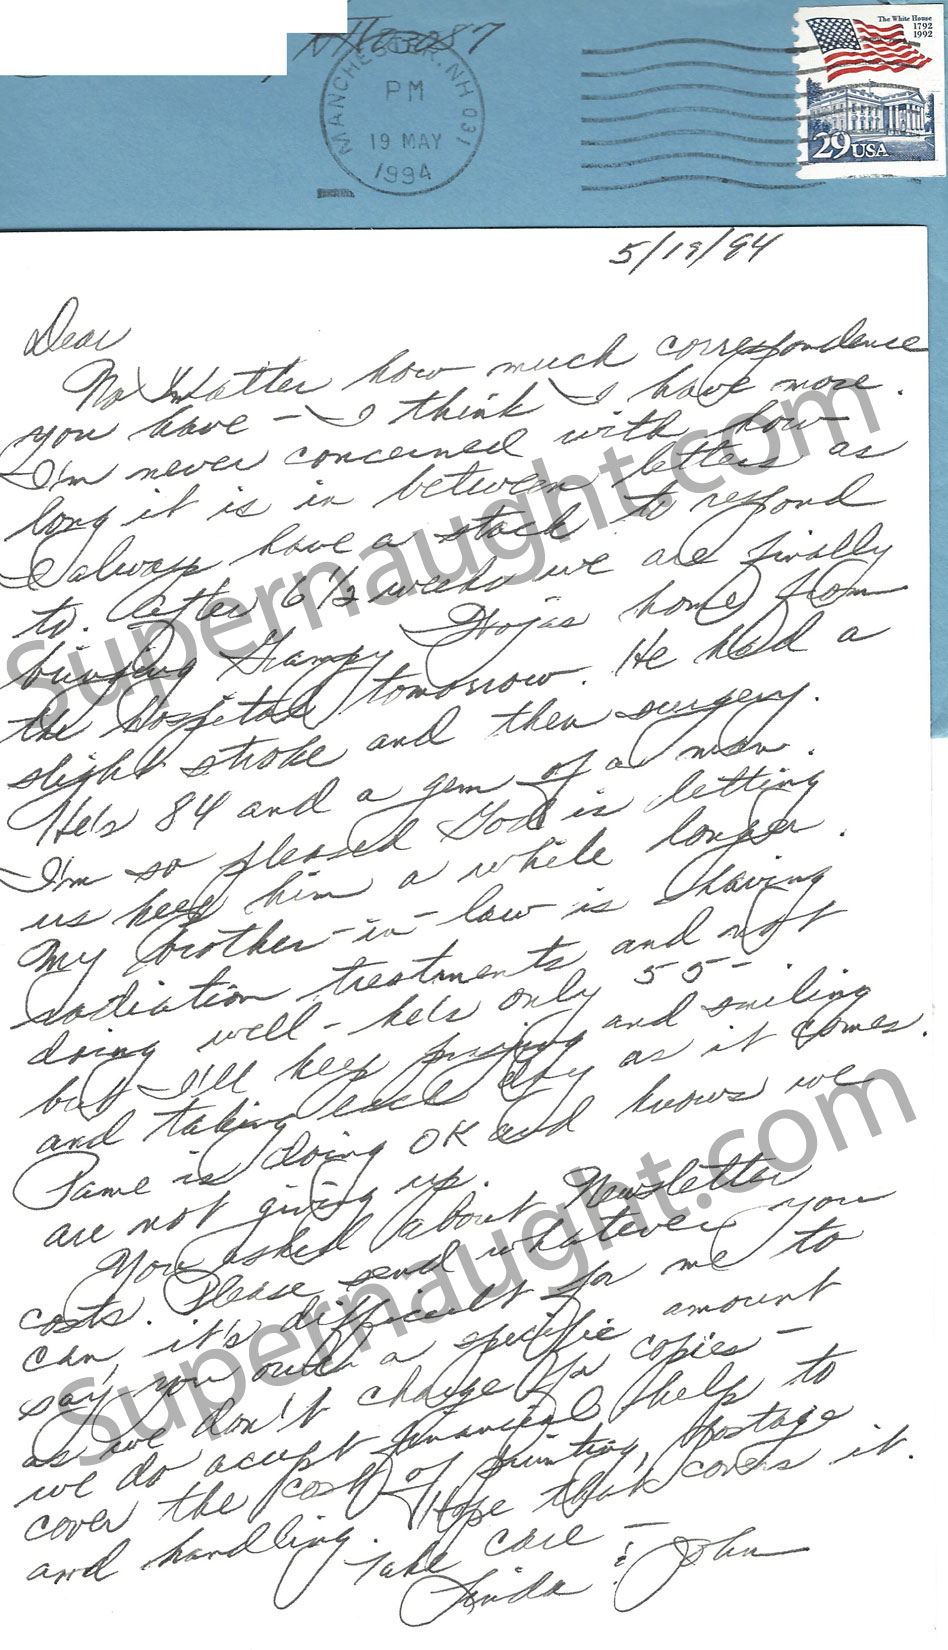 The White House
1792
1992
NH 03087
MANCHESTER, NH 031
PM
19 MAY
1994
29 USA
5/19/94
Dear
No Matter how much correspondence
you have - I think I have more.
I'm never concerned with how
long it is in between letters as
I always have a stack to respond
to. After 6 1/2 weeks we are finally
bringing Grampy Wojas home from
the hospital tomorrow. He had a
slight stroke and then surgery.
He's 84 and a gem of a man.
I'm so pleased God is letting
us keep him a while longer.
My brother-in-law is having
radiation treatments and not
doing well - he's only 55 -
but I'll keep praying and smiling
and taking each day as it comes.
Pame is doing OK and knows we
are not giving up.
You asked about Newsletter
costs. Please send whatever you
can, it's difficult for me to
say you owe a specific amount
as we don't charge for copies -
we do accept financial help to
cover the cost of printing, postage
and handling. Hope that covers it.
Take care -
Linda & John
Supernaught.com
Supernaught.com